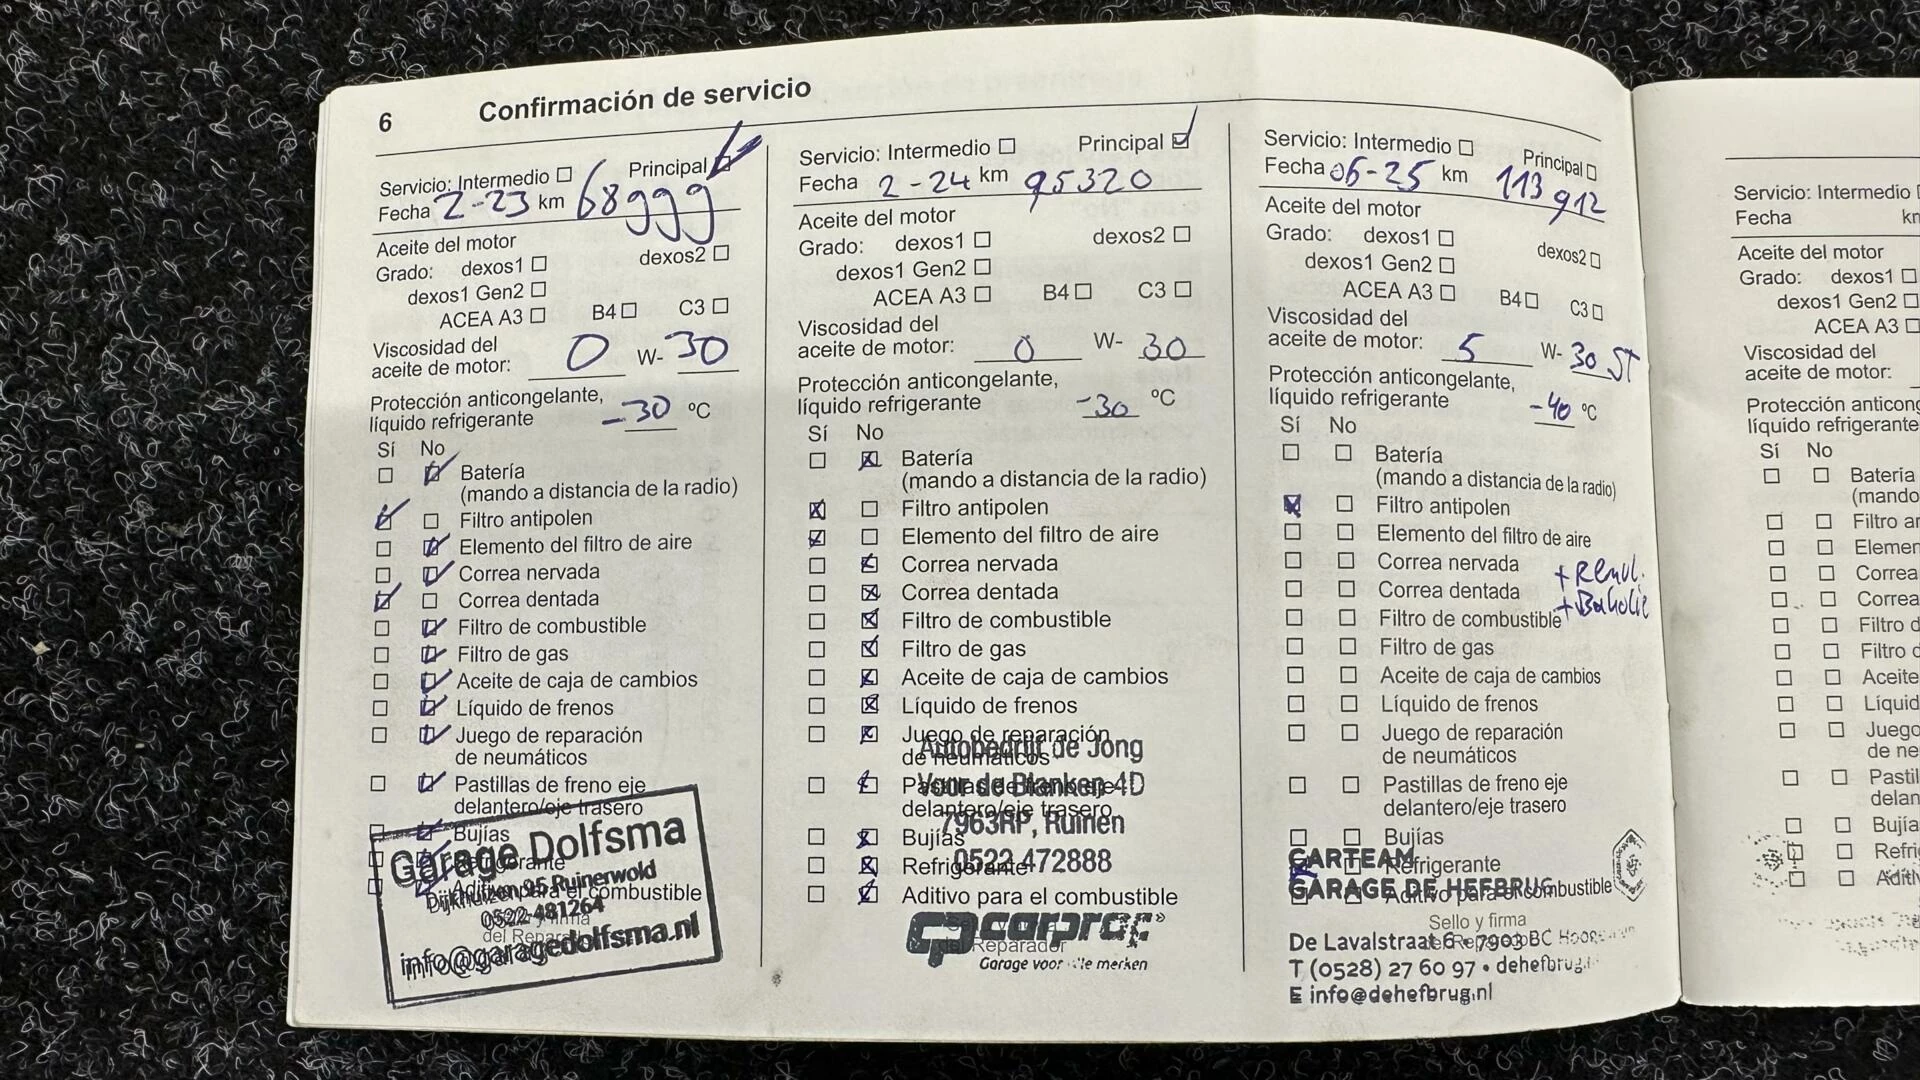 6 Confirmación de servicio
Servicio: Intermedio Principal
Fecha 2-23 km 68999
Aceite del motor
Grado: dexos1 dexos2
dexos1 Gen2
ACEA A3 B4 C3
Viscosidad del
aceite de motor: 0 W- 30
Protección anticongelante,
líquido refrigerante -30 ºC
Sí No
Batería
(mando a distancia de la radio)
Filtro antipolen
Elemento del filtro de aire
Correa nervada
Correa dentada
Filtro de combustible
Filtro de gas
Aceite de caja de cambios
Líquido de frenos
Juego de reparación
de neumáticos
Pastillas de freno eje
delantero/eje trasero
Bujías
Refrigerante
Aditivo para el combustible
Garage Dolfsma
Dijkhuizen 95 Ruinerwold
0522-481264
info@garagedolfsma.nl
Servicio: Intermedio Principal
Fecha 2-24 km 95320
Aceite del motor
Grado: dexos1 dexos2
dexos1 Gen2
ACEA A3 B4 C3
Viscosidad del
aceite de motor: 0 W- 30
Protección anticongelante,
líquido refrigerante -30 ºC
Sí No
Batería
(mando a distancia de la radio)
Filtro antipolen
Elemento del filtro de aire
Correa nervada
Correa dentada
Filtro de combustible
Filtro de gas
Aceite de caja de cambios
Líquido de frenos
Juego de reparación
de neumáticos
Pastillas de freno eje
delantero/eje trasero
Bujías
Refrigerante
Aditivo para el combustible
Autobedrijf de Jong
Voor de Blanken 4D
7963RP, Ruinen
0522 472888
cp carprof
Garage voor alle merken
Servicio: Intermedio Principal
Fecha 06-25 km 113912
Aceite del motor
Grado: dexos1 dexos2
dexos1 Gen2
ACEA A3 B4 C3
Viscosidad del
aceite de motor: 5 W- 30
Protección anticongelante,
líquido refrigerante -40 ºC
Sí No
Batería
(mando a distancia de la radio)
Filtro antipolen
Elemento del filtro de aire
Correa nervada
Correa dentada
Filtro de combustible
Filtro de gas
Aceite de caja de cambios
Líquido de frenos
Juego de reparación
de neumáticos
Pastillas de freno eje
delantero/eje trasero
Bujías
Refrigerante
Aditivo para el combustible
Sello y firma
CARTEAM
GARAGE DE HEFBRUG
De Lavalstraat 6 • 7903 BC
T (0528) 27 60 97 • dehefbrug
E info@dehefbrug.nl
Servicio: Intermedio
Fecha
Aceite del motor
Grado: dexos1
dexos1 Gen2
ACEA A3
Viscosidad del
aceite de motor:
Protección
líquido refrigerante
Sí No
Batería
(mando
Filtro
Correa
Correa
Filtro
Filtro
Aceite